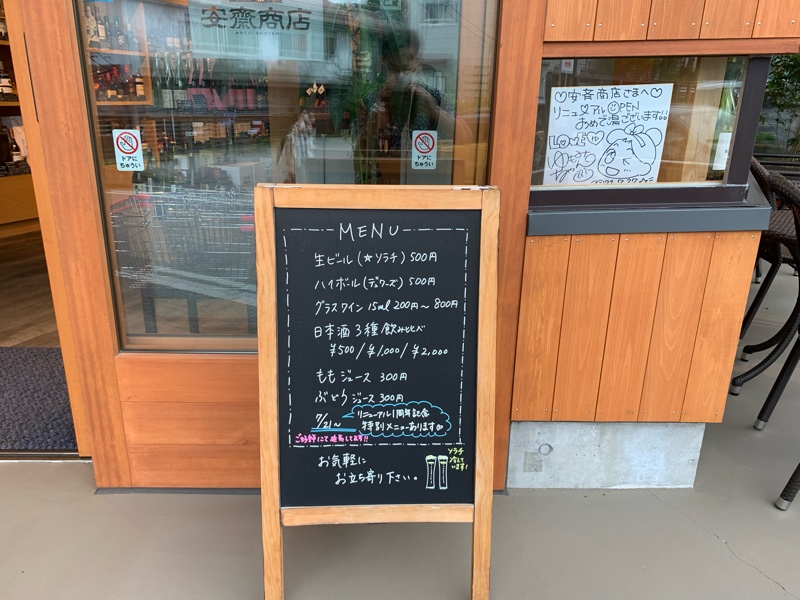 安齋商店
ANZAI SHOTEN
ドアに
ちゅうい
ドアに
ちゅうい
♡安斉商店さまへ♡
リニューアルOPEN
おめで湯ございます!!
MENU
生ビール(★ソラチ)500円
ハイボール(デュワーズ)500円
グラスワイン 15ml 200円～800円
日本酒3種飲み比べ
¥500/¥1,000/¥2,000
ももジュース 300円
ぶどうジュース 300円
7/21～
リニューアル1周年記念
特別メニューあります
ご好評にて延長してます!!
ソラチ
冷えて
います!
お気軽に
お立ち寄り下さい。